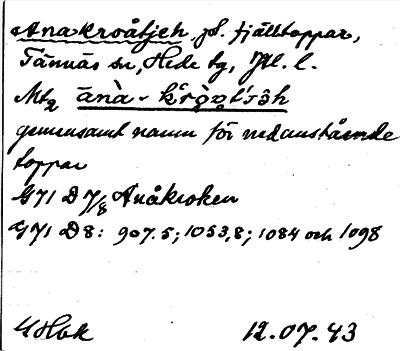 Anakroåtjeh pl. fjälltoppar,
Tännäs sn, Hede tg, Jtl. l.
Mt2 ānà - kròo̯t'jɔ̄h
gemensamt namn för nedanstående
toppar
G71 D 7/8 Anåkroken
G71 D 8: 907.5; 1053,8; 1084 och 1098
12.07.43